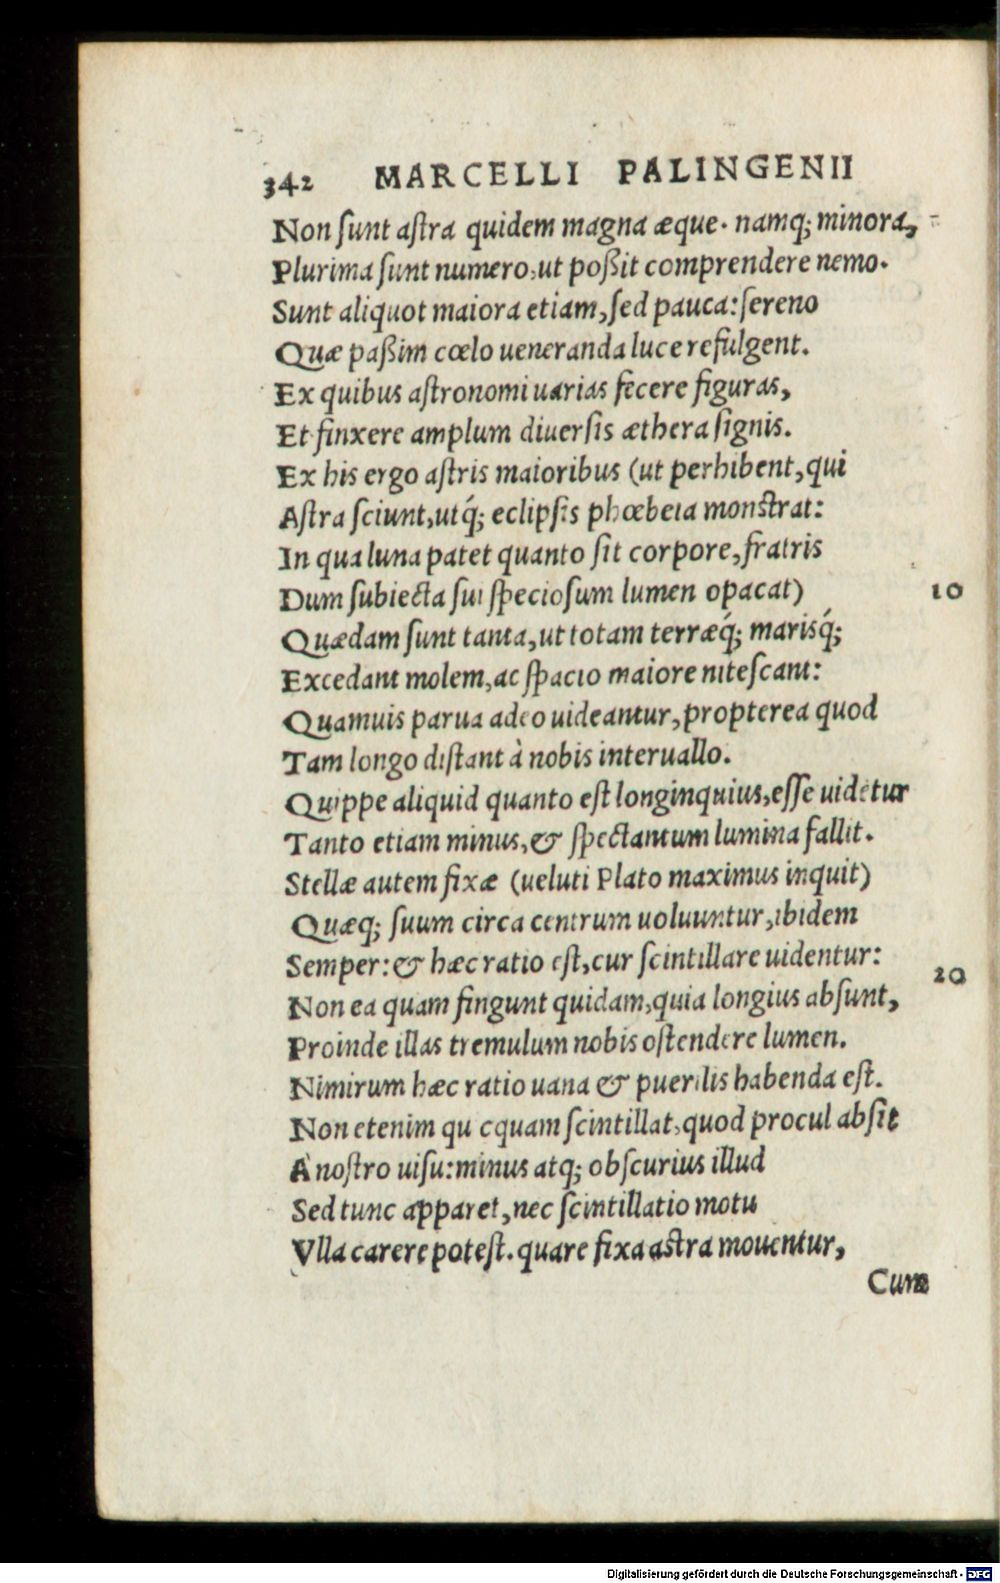 342 MARCELLI PALINGENII
Non ſunt aſtra quidem magna æque. namq; minora,
Plurima ſunt numero, ut poßit comprendere nemo.
Sunt aliquot maiora etiam, ſed pauca: ſereno
Quæ paßim cœlo ueneranda luce refulgent.
Ex quibus aſtronomi uarias fecere figuras,
Et finxere amplum diuerſis æthera ſignis.
Ex his ergo aſtris maioribus (ut perhibent, qui
Aſtra ſciunt, utq́; eclipſis phœbeia monſtrat:
In qua luna patet quanto ſit corpore, fratris
Dum ſubiecta ſui ſpecioſum lumen opacat) 10
Quædam ſunt tanta, ut totam terræq́; marisq́;
Excedant molem, ac ſpacio maiore niteſcant:
Quamuis parua adeo uideantur, propterea quod
Tam longo diſtant à nobis interuallo.
Quippe aliquid quanto eſt longinquius, eſſe uidetur
Tanto etiam minus, & ſpectantum lumina fallit.
Stellæ autem fixæ (ueluti Plato maximus inquit)
Quæq; ſuum circa centrum uoluuntur, ibidem
Semper: & hæc ratio eſt, cur ſcintillare uidentur:
Non ea quam fingunt quidam, quia longius abſunt, 20
Proinde illas tremulum nobis oſtendere lumen.
Nimirum hæc ratio uana & puerilis habenda eſt.
Non etenim qu cquam ſcintillat, quod procul abſit
A noſtro uiſu: minus atq; obſcurius illud
Sed tunc apparet, nec ſcintillatio motu
Vlla carere poteſt. quare fixa aſtra mouentur,
Cum
Digitalisierung gefördert durch die Deutsche Forschungsgemeinschaft - DFG